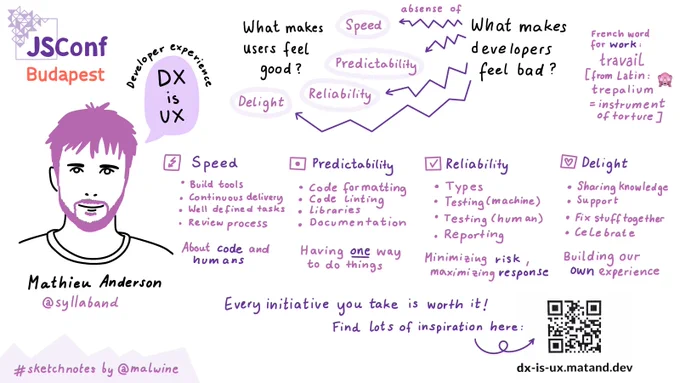 JSConf
Budapest
Developer experience
DX
is
UX
What makes
users feel
good?
Speed
Predictability
Reliability
Delight
absense of
What makes
developers
feel bad?
French word
for work:
travail
[from Latin:
trepalium
= instrument
of torture]
Mathieu Anderson
@syllaband
Speed
• Build tools
• Continuous delivery
• Well defined tasks
• Review process
About code and
humans
Predictability
• Code formatting
• Code linting
• Libraries
• Documentation
Having one way
to do things
Reliability
• Types
• Testing (machine)
• Testing (human)
• Reporting
Minimizing risk,
maximizing response
Delight
• Sharing knowledge
• Support
• Fix stuff together
• Celebrate
Building our
own experience
Every initiative you take is worth it!
Find lots of inspiration here:
dx-is-ux.matand.dev
#sketchnotes by @malwine